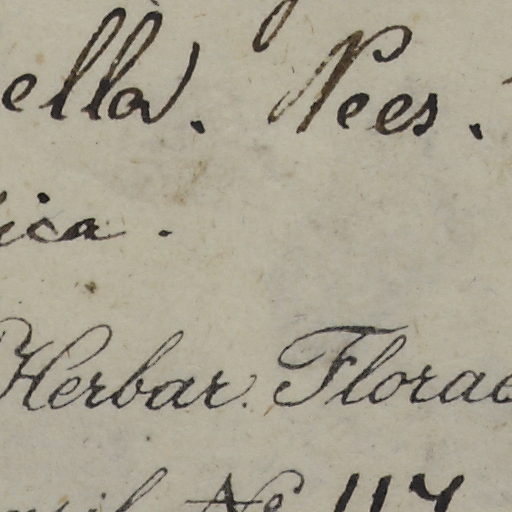 ella. Nees.
ica.
Herbar. Florae
№ 117